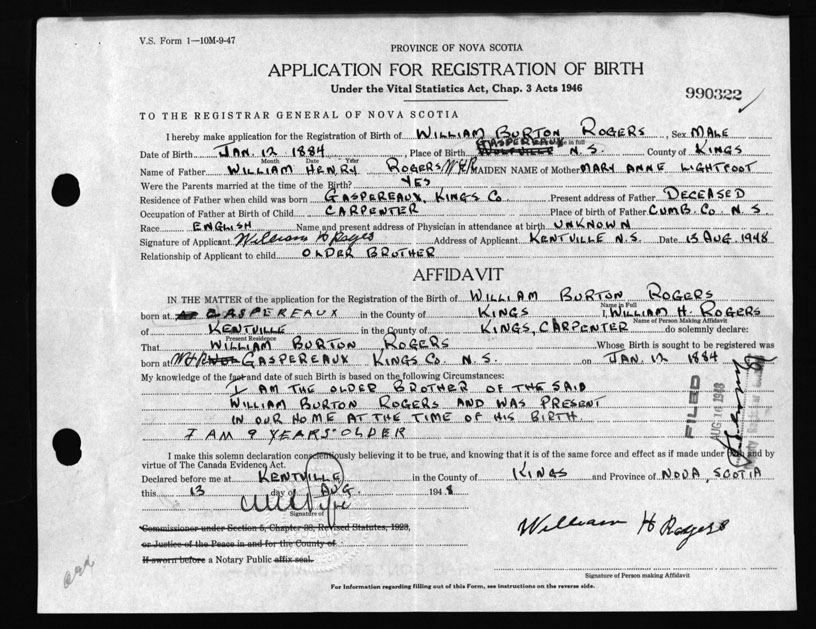 V.S. Form 1—10M-9-47
PROVINCE OF NOVA SCOTIA
APPLICATION FOR REGISTRATION OF BIRTH
Under the Vital Statistics Act, Chap. 3 Acts 1946
990322
TO THE REGISTRAR GENERAL OF NOVA SCOTIA
I hereby make application for the Registration of Birth of WILLIAM BURTON ROGERS, Sex MALE
Date of Birth JAN. 12 1884 Place of Birth GASPEREAUX WOLFVILLE N.S. County of KINGS
Month Date Year
Name of Father WILLIAM HENRY ROGERS WHR MAIDEN NAME of Mother MARY ANNE LIGHTFOOT
Were the Parents married at the time of the Birth? YES
Residence of Father when child was born GASPEREAUX, KINGS CO Present address of Father DECEASED
Occupation of Father at Birth of Child CARPENTER Place of birth of Father CUMB. CO N.S.
Race ENGLISH Name and present address of Physician in attendance at birth UNKNOWN
Signature of Applicant William H Rogers Address of Applicant KENTVILLE N.S. Date 13 AUG. 1948
Relationship of Applicant to child OLDER BROTHER
AFFIDAVIT
IN THE MATTER of the application for the Registration of the Birth of WILLIAM BURTON ROGERS
Name in Full
born at GASPEREAUX in the County of KINGS I, WILLIAM H. ROGERS
Name of Person Making Affidavit
of KENTVILLE in the County of KINGS, CARPENTER do solemnly declare:
Present Residence
That WILLIAM BURTON ROGERS Whose Birth is sought to be registered was
born at WHR GASPEREAUX KINGS CO. N.S. on JAN. 12 1884
My knowledge of the fact and date of such Birth is based on the following Circumstances:
I AM THE OLDER BROTHER OF THE SAID
WILLIAM BURTON ROGERS AND WAS PRESENT
IN OUR HOME AT THE TIME OF HIS BIRTH
I AM 9 YEARS OLDER
FILED
AUG 16 1948
I make this solemn declaration conscientiously believing it to be true, and knowing that it is of the same force and effect as if made under Oath and by
virtue of The Canada Evidence Act.
Declared before me at KENTVILLE in the County of KINGS and Province of NOVA SCOTIA
this 13 day of AUG. 1948
Signature of
Commissioner under Section 5, Chapter 38, Revised Statutes, 1923,
or Justice of the Peace in and for the County of
If sworn before a Notary Public affix seal.
William H Rogers
Signature of Person making Affidavit
For Information regarding filling out of this Form, see instructions on the reverse side.